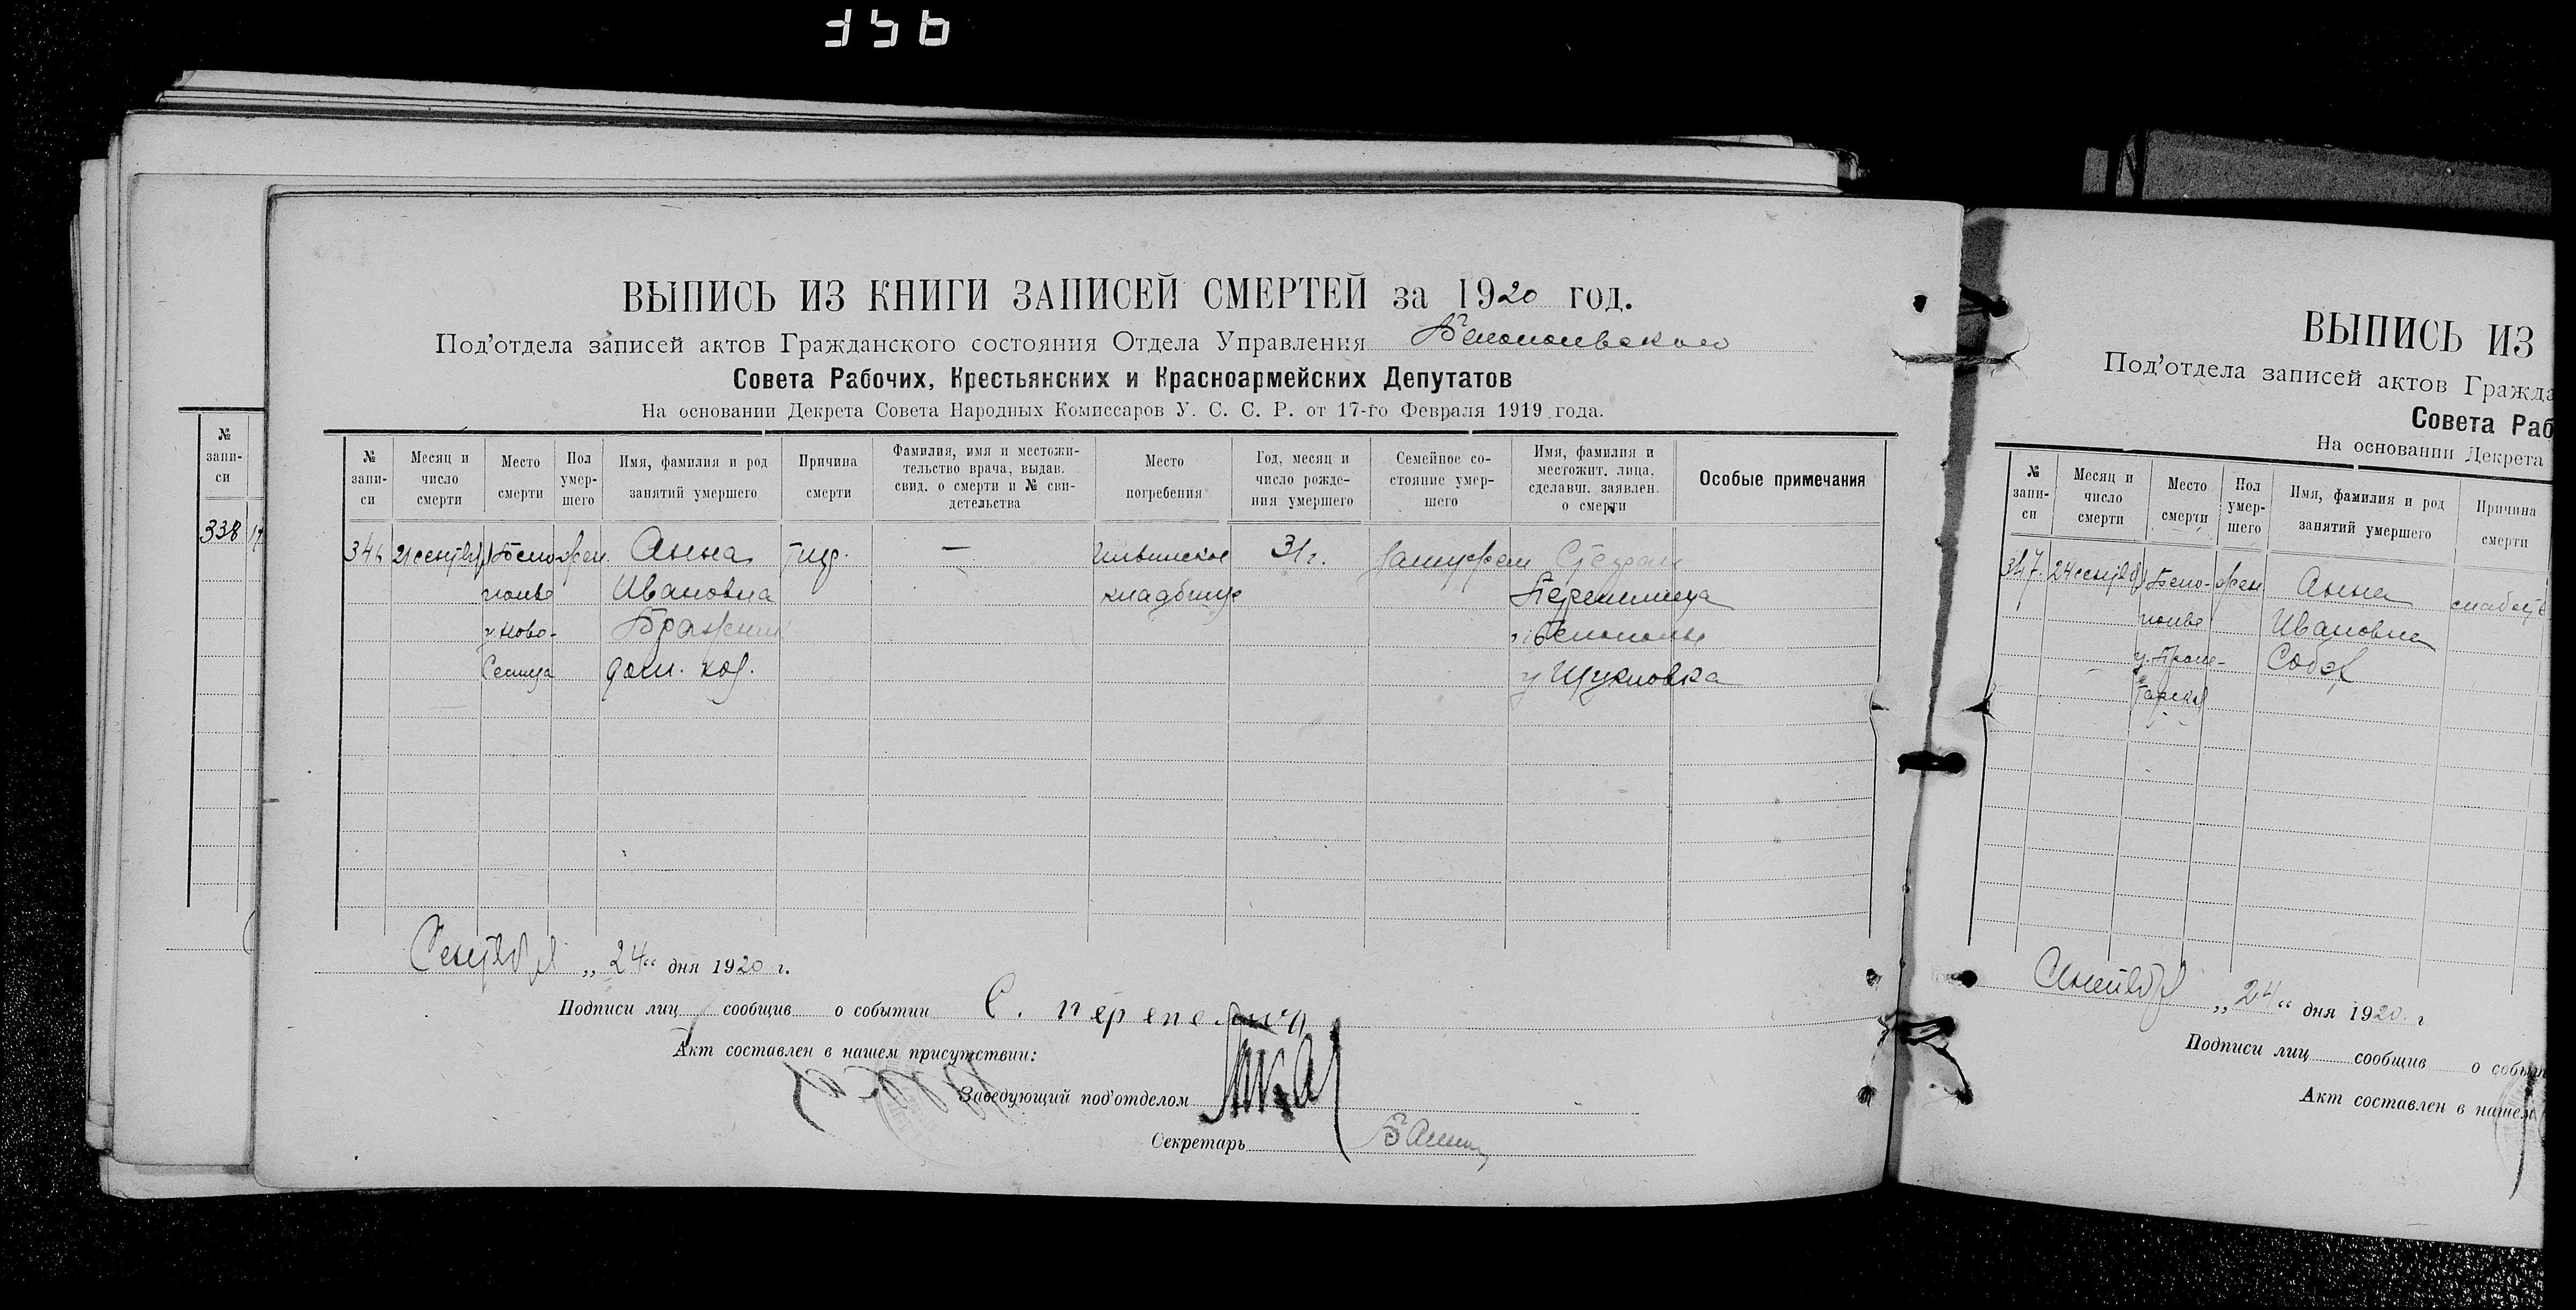 346
ВЫПИСЬ ИЗ КНИГИ ЗАПИСЕЙ СМЕРТЕЙ за 1920 год.
Под'отдела записей актов Гражданского состояния Отдела Управления Белопольского
Совета Рабочих, Крестьянских и Красноармейских Депутатов
На основании Декрета Совета Народных Комиссаров У. С. С. Р. от 17-го Февраля 1919 года.
№ запи-си
Месяц и число смерти
Место смерти
Пол умер-шего
Имя, фамилия и род занятий умершего
Причина смерти
Фамилия, имя и местожи-тельство врача, выдав. свид. о смерти и № сви-детельства
Место погребения
Год, месяц и число рожде-ния умершего
Семейное со-стояние умер-шего
Имя, фамилия и местожит. лица, сделавш. заявлен. о смерти
Особые примечания
346 21 сентября Бело- жен. Анна Тиф. — Ильинское 31 г. замужем Стефан
полье Ивановна кладбище
у Ново- Бражник Белополье
Селица дом. хоз. у Щукловка
Сентября „24“ дня 1920 г.
Подписи лиц сообщив о событии С. перепелица
Акт составлен в нашем присутствии:
Заведующий под'отделом
Секретарь
№ запи-си
338 17
ВЫПИСЬ ИЗ
Под'отдела записей актов Гражда
Совета Раб
На основании Декрета
№ запи-си
Месяц и число смерти
Место смерти
Пол умер-шего
Имя, фамилия и род занятий умершего
Причина смерти
347. 24 сентября Бело- жен Анна слабость
полье Ивановна
Сентября „24“ дня 1920 г
Подписи лиц сообщив о событи
Акт составлен в нашем